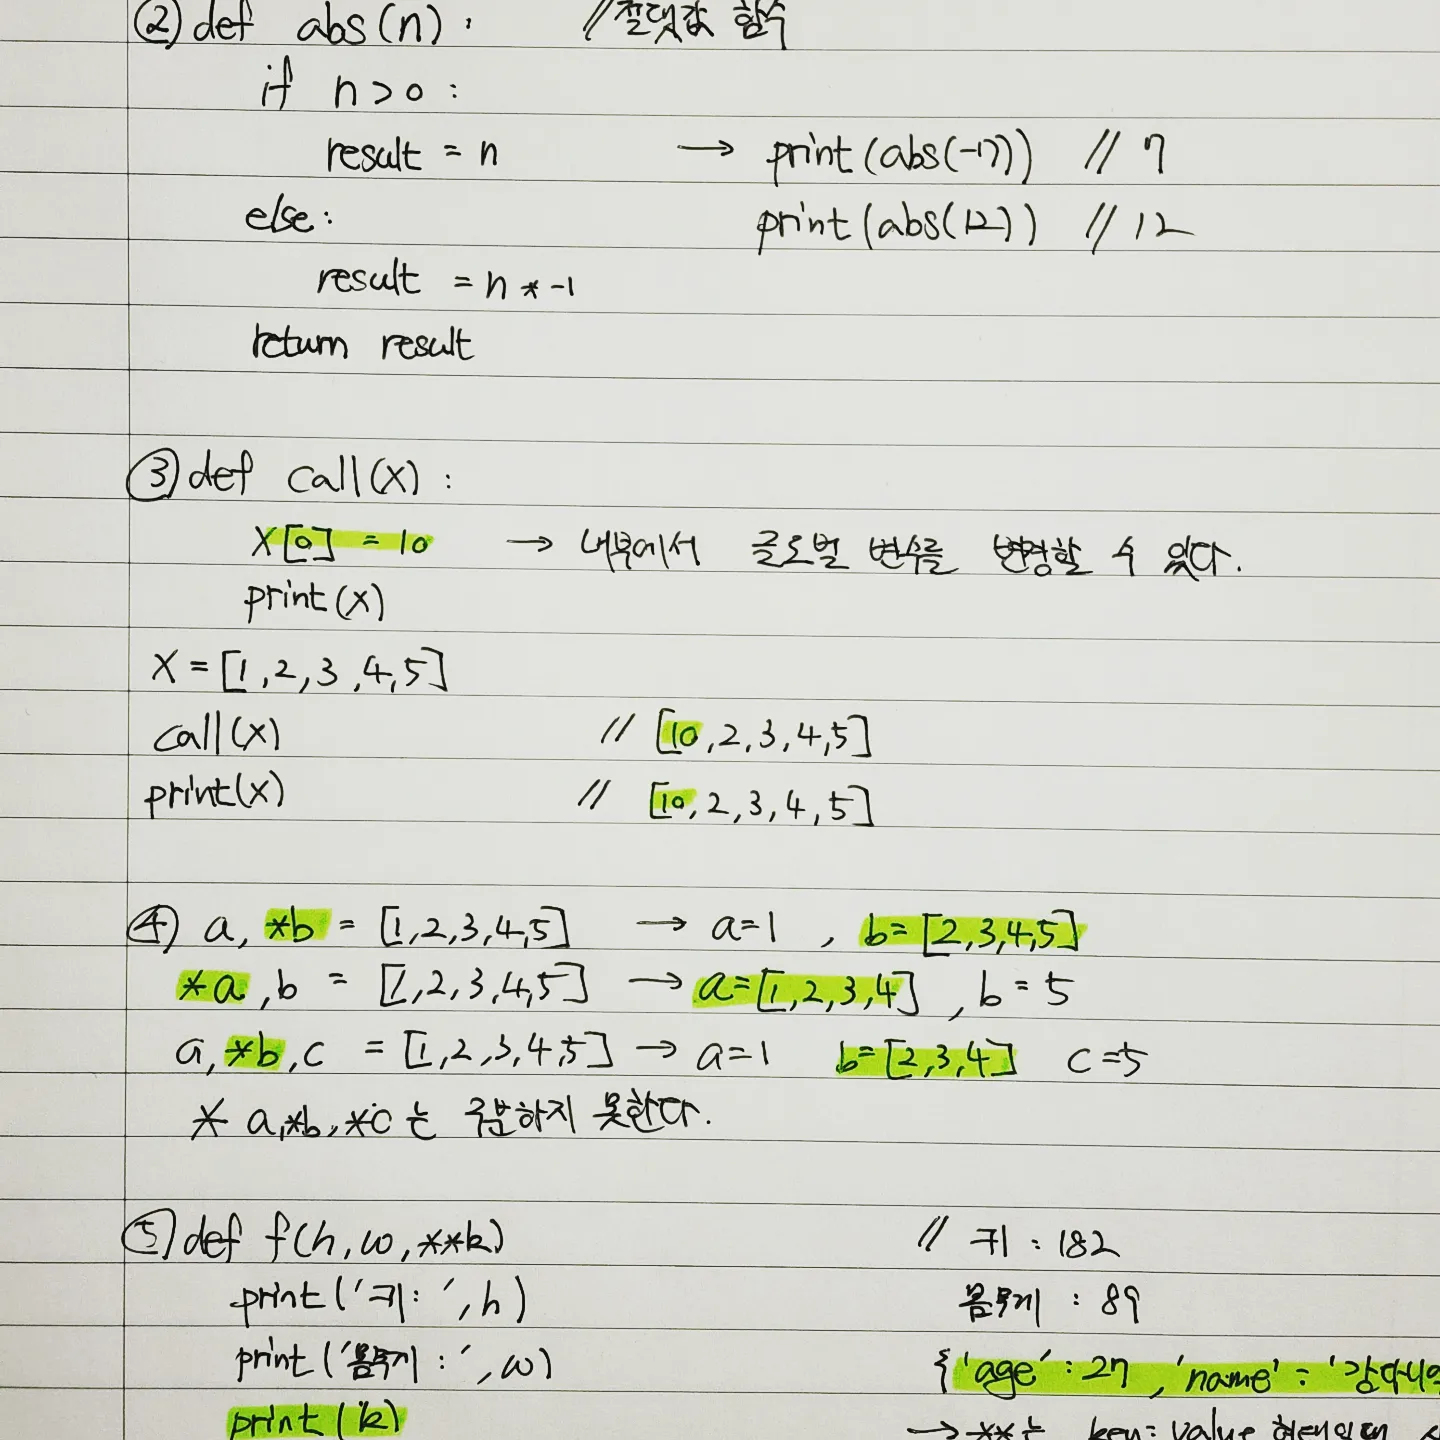 ② def abs(n): //절댓값 함수
if n>0:
result = n → print(abs(-7)) // 7
else: print(abs(12)) // 12
result = n * -1
return result
③ def call(x):
x[0] = 10 → 내부에서 글로벌 변수를 변경할 수 있다.
print(x)
x = [1,2,3,4,5]
call(x) // [10,2,3,4,5]
print(x) // [10,2,3,4,5]
④ a, *b = [1,2,3,4,5] → a=1, b=[2,3,4,5]
*a, b = [1,2,3,4,5] → a=[1,2,3,4], b=5
a, *b, c = [1,2,3,4,5] → a=1 b=[2,3,4] c=5
* a,*b,*c는 구분하지 못한다.
⑤ def f(h,w,**k) // 키 : 182
print('키:',h) 몸무게 : 89
print('몸무게:',w) {'age':27,'name':'강다니
print(k) → **는 key:value 형태의